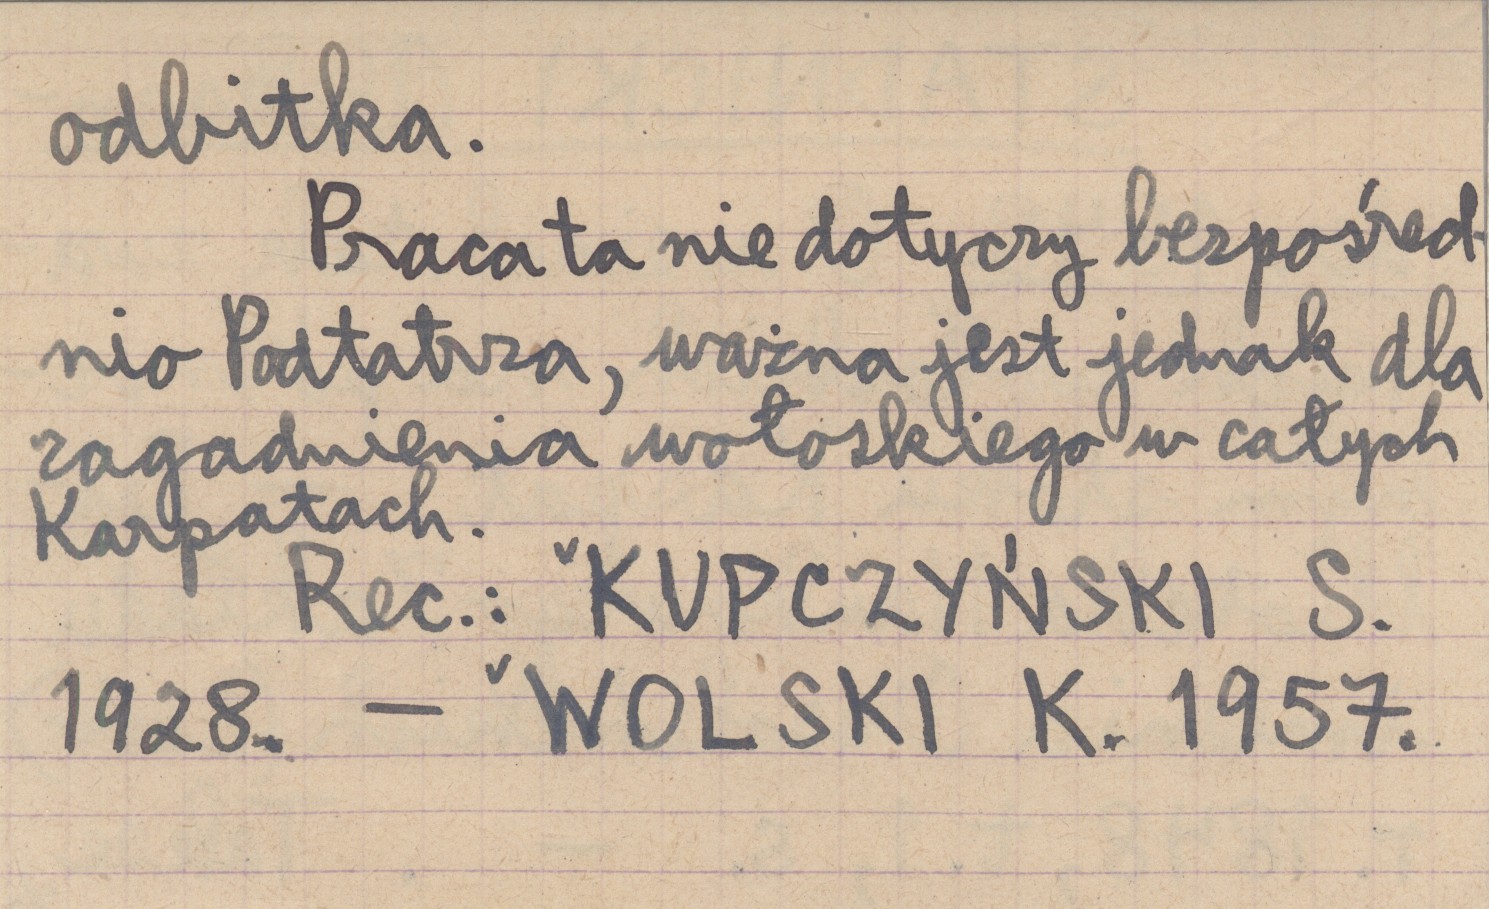 odbitka.
Praca ta nie dotyczy bezpośred-
nio Podtatrza, ważna jest jednak dla
zagadnienia wołoskiego w całych
Karpatach.
Rec.: ˇKUPCZYŃSKI S.
1928. — ˇWOLSKI K. 1957.